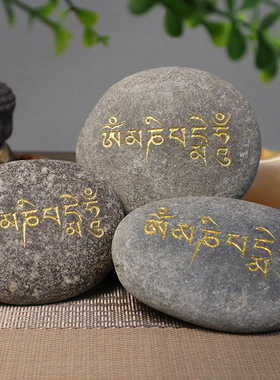 ཨོཾ་མ་ཎི་པདྨེ་ཧཱུྃ
མ་ཎི་པདྨེ་ཧཱུྃ
ཨོཾ་མ་ཎི་པདྨེ